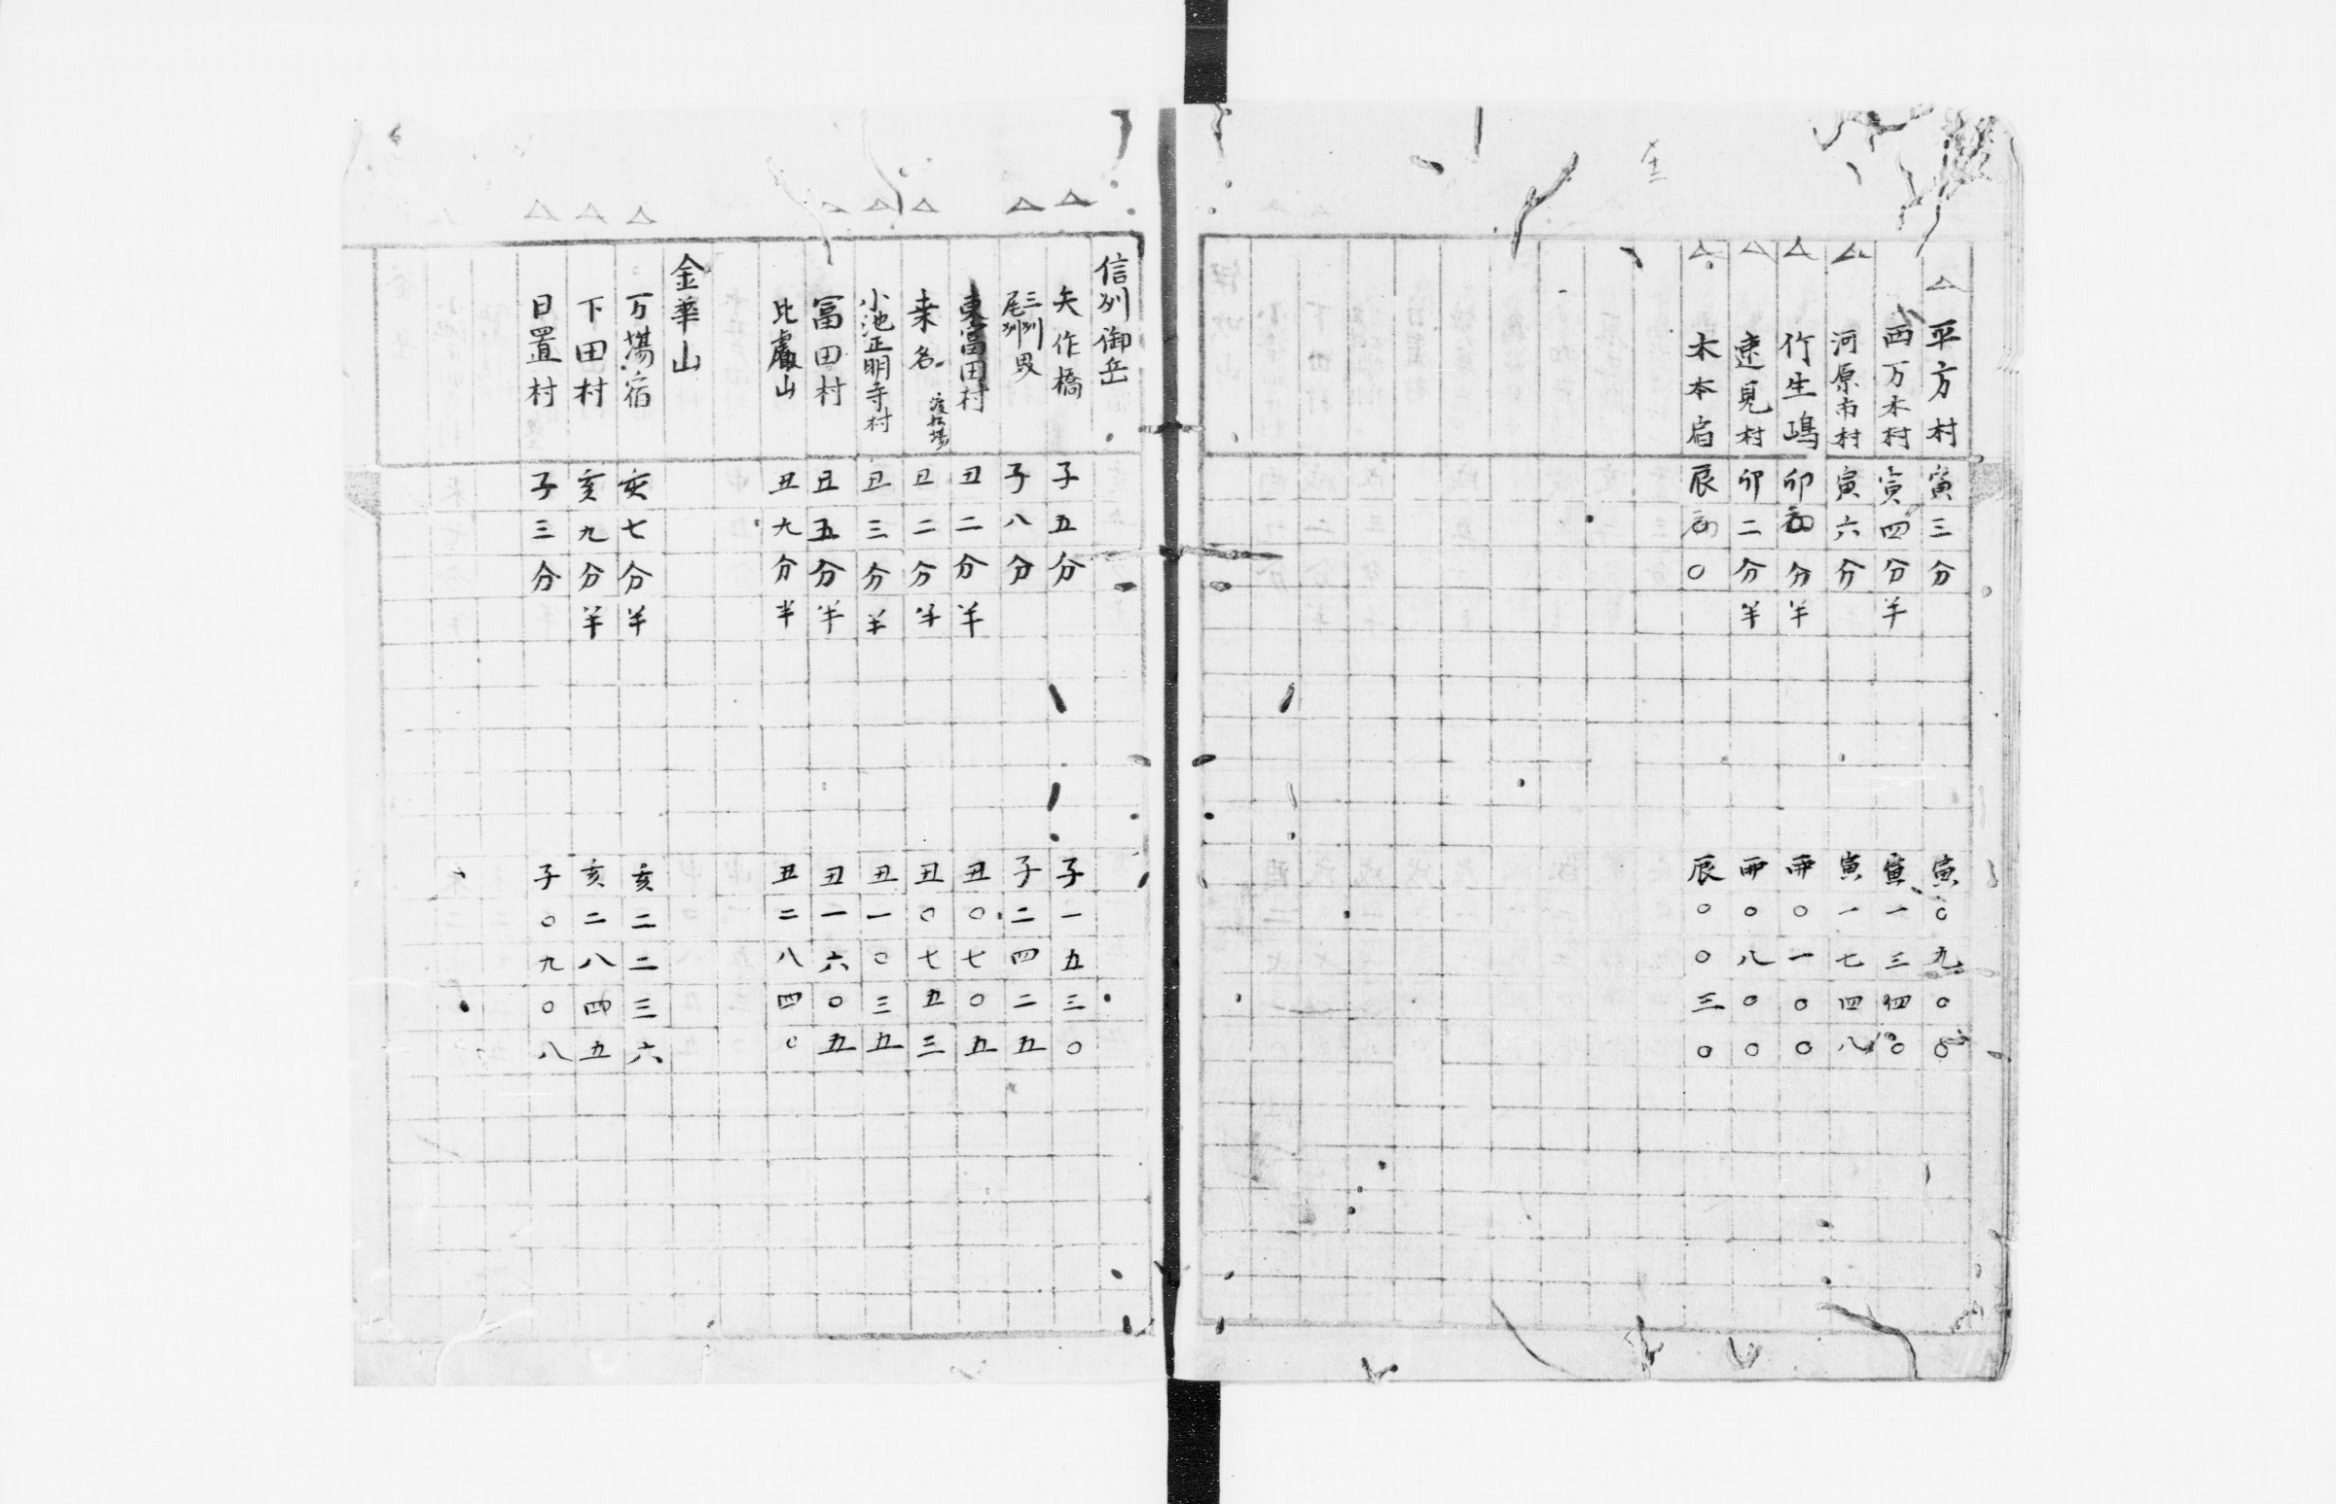 △平方村 寅三分 寅〇九〇〇
西万木村 寅四分半 寅一三四〇
△河原市村 寅六分 寅一七四八
△竹生嶋 卯初分半 夘〇一〇〇
△速見村 卯二分半 夘〇八〇〇
△木本宿 辰初〇 辰〇〇三〇
信州御岳
△矢作橋 子五分 子一五三〇
△三州尾州界 子八分 子二四二五
東冨田村 丑二分半 丑〇七〇五
△桒名渡松場 丑二分半 丑〇七五三
△小池正明寺村 丑三分半 丑一〇三五
△冨田村 丑五分半 丑一六〇五
比叡山 丑九分半 丑二八四〇
金華山
△万場宿 亥七分半 亥二二三六
△下田村 亥九分半 亥二八四五
△日置村 子三分 子〇九〇八